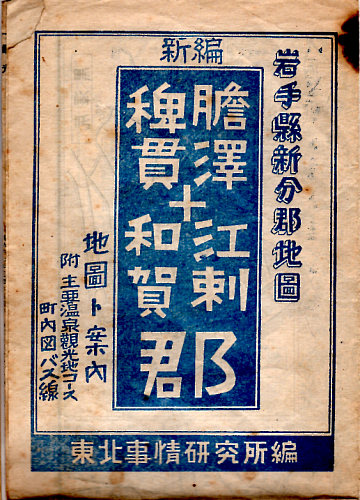 新編
岩手縣新分郡地圖
膽澤江刺
稗貫和賀
郡
地圖ト案内
附主要温泉觀光地コース
町内図バス線
東北事情研究所編